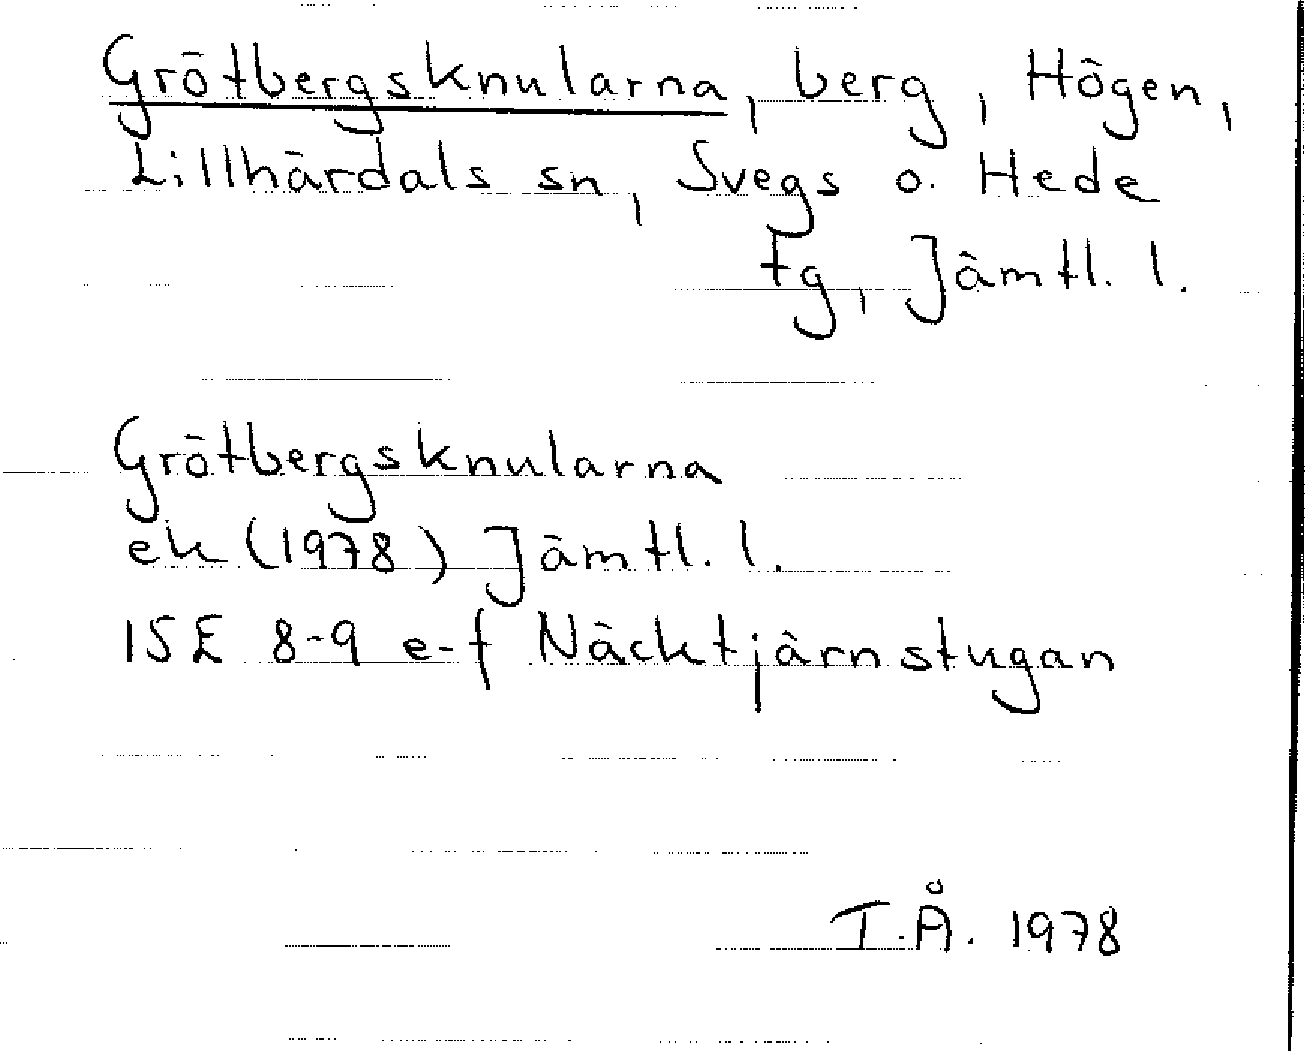 Grötbergsknularna, berg, Högen,
Lillhärdals sn, Svegs o. Hede
tg, Jämtl. l.
Grötbergsknularna
ek (1978) Jämtl. l.
15E 8-9 e-f Näcktjärnstugan
T.Å. 1978